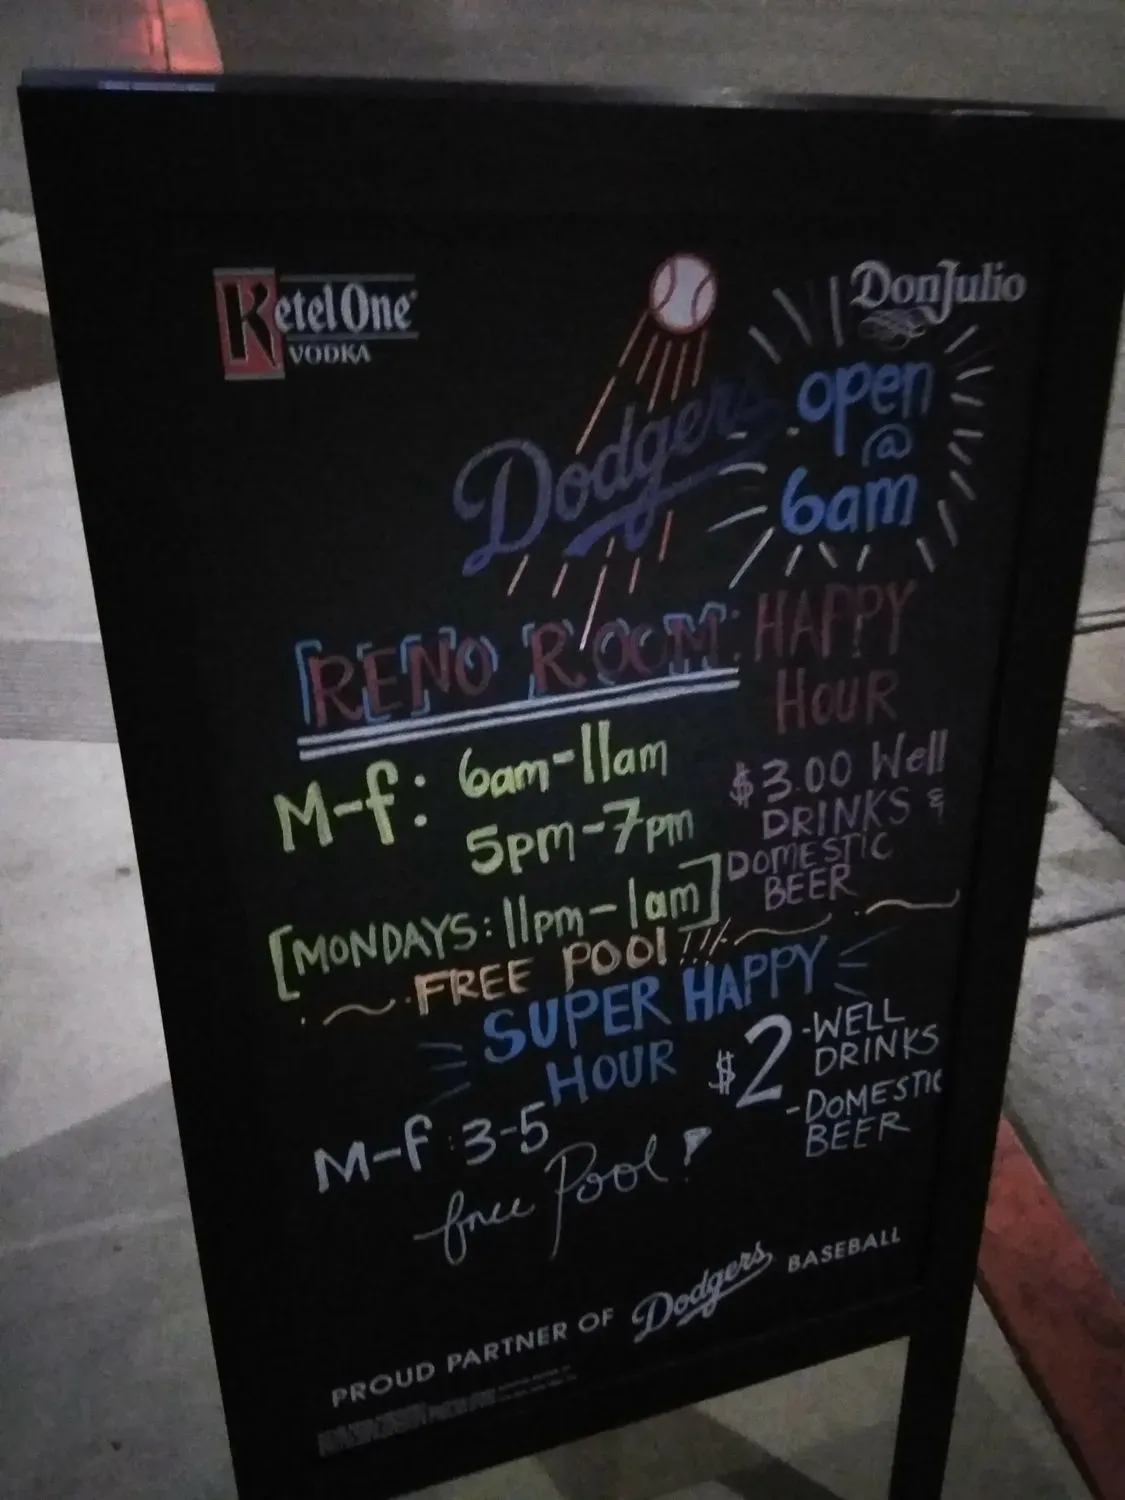 Ketel One
VODKA
DonJulio
Dodgers
open
@
6am
RENO ROOM: HAPPY
HOUR
M-f: 6am-11am
5pm-7pm
[MONDAYS: 11pm-1am]
$3.00 Well
DRINKS &
DOMESTIC
BEER
FREE POOl!!!
SUPER HAPPY
HOUR
M-f: 3-5
$2 -WELL
DRINKS
-DOMESTIC
BEER
free Pool!
PROUD PARTNER OF Dodgers BASEBALL